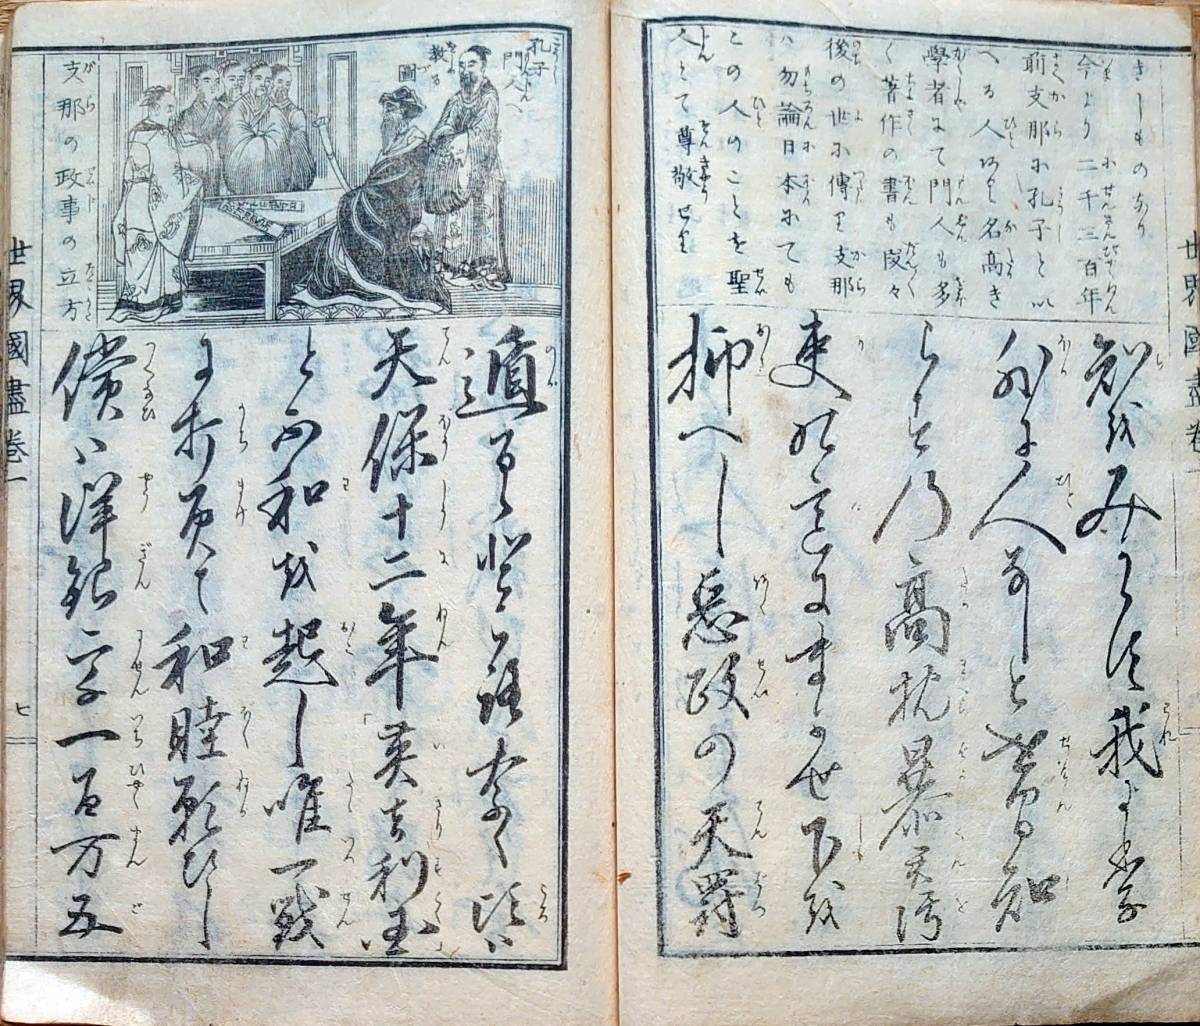 世界國盡卷一
きしものなり
今より二千三百年
前支那に孔子とい
へる人あり名高き
學者にて門人も多
く著作の書も段々
後の世に傳り支那
ハ勿論日本にても
この人のことを聖
人とて尊敬せり
知をみがゝず我より
外に人なしと世間知
らずの高枕暴君汚
吏の意にまかせ下を
抑へし悪政の天罰
孔子
門人へ
教る
圖
支那の政事の立方
遁るゝところなく頃ハ
天保十二年英吉利国
と不和を起し唯一戦
に打負て和睦願ひし
償ハ洋銀二千一百万五
世界國盡卷一
七